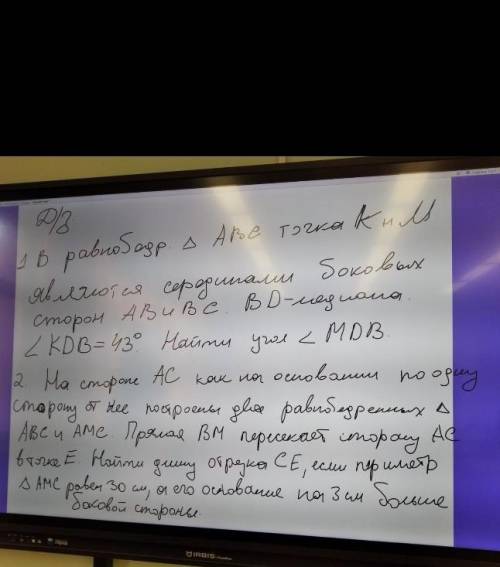 Д/З
1 В равнобедр. △ ABC точка K и M
являются серединами боковых
сторон AB и BC. BD-медиана.
∠KDB=43°. Найти угол ∠MDB.
2. На стороне AC как на основании по одну
сторону от нее построены два равнобедренных △
ABC и AMC. Прямая BM пересекает сторону AC
в точке E. Найти длину отрезка CE, если периметр
△ AMC равен 30 см, а его основание на 3 см больше
боковой стороны.
IRBIS